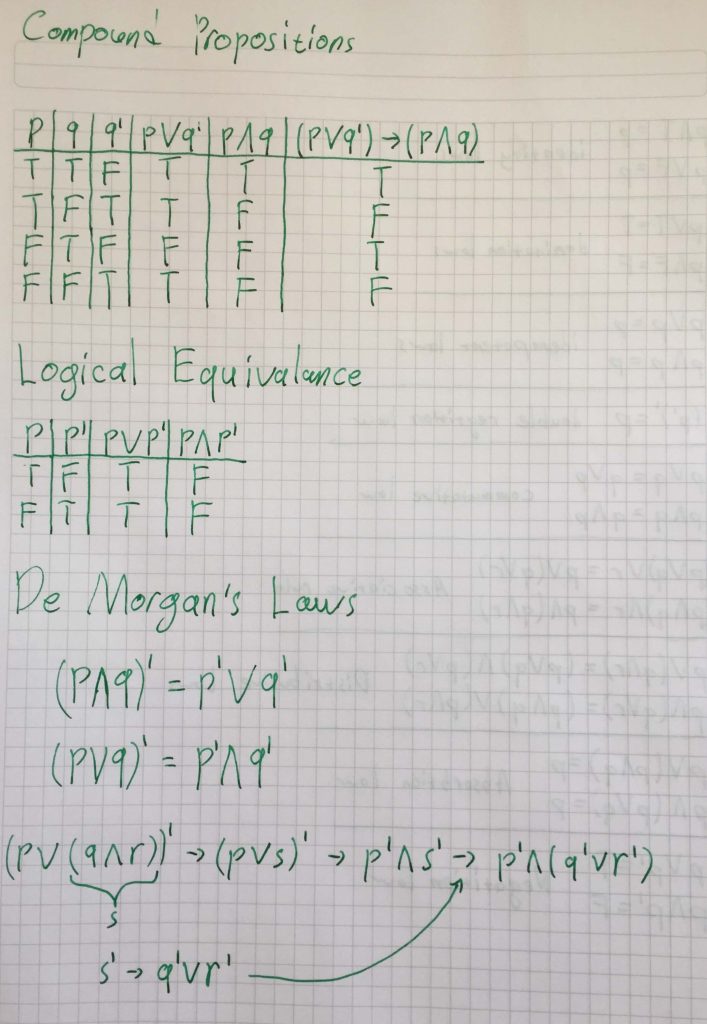 Compound Propositions
P | q | q' | p∨q' | p∧q | (p∨q') → (p∧q)
T | T | F | T | T | T
T | F | T | T | F | F
F | T | F | F | F | T
F | F | T | T | F | F
Logical Equivalance
P | P' | P∨P' | P∧P'
T | F | T | F
F | T | T | F
De Morgan's Laws
(P∧q)' = p'∨q'
(p∨q)' = p'∧q'
(p∨(q∧r))' → (p∨s)' → p'∧s' → p'∧(q'∨r')
s
s' → q'∨r'